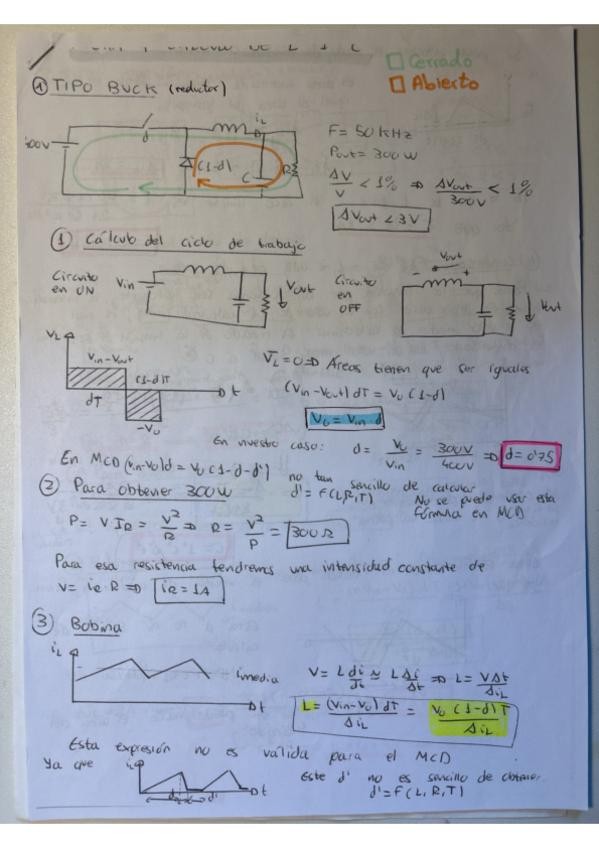 CALCULO DE L Y C
□ Cerrado
□ Abierto
① TIPO BUCK (reductor)
400V
d
iL
(1-d)
C
R
F = 50 kHz
Pout = 300 W
ΔV/V < 1% ⇒ ΔVout/300V < 1%
ΔVout < 3V
① Cálculo del ciclo de trabajo
Circuito en ON
Vin
Vout
Circuito en OFF
- Vout +
Vout
VL
Vin-Vout
(1-d)T
dT
t
-Vo
V̄L = 0 ⇒ Áreas tienen que ser iguales
(Vin-Vout) dT = Vo (1-d)
Vo = Vin d
En nuestro caso: d = Vo/Vin = 300V/400V ⇒ d = 0'75
En MCD (Vin-Vo)d = Vo (1-d-d') no tan sencillo de calcular
d' = f(L,R,T)
No se puede usar esta fórmula en MCD
② Para obtener 300W
P = V IR = V²/R ⇒ R = V²/P = 300Ω
Para esa resistencia tendremos una intensidad constante de
V = iR·R ⇒ iR = 1A
③ Bobina
iL
imedia
t
V = L di/dt ≃ L Δi/Δt ⇒ L = VΔt/ΔiL
L = (Vin-Vo) dT/ΔiL = Vo (1-d)T/ΔiL
Esta expresión no es válida para el MCD
Ya que
iL
d
d'
t
Este d' no es sencillo de obtener
d' = f(L, R, T)